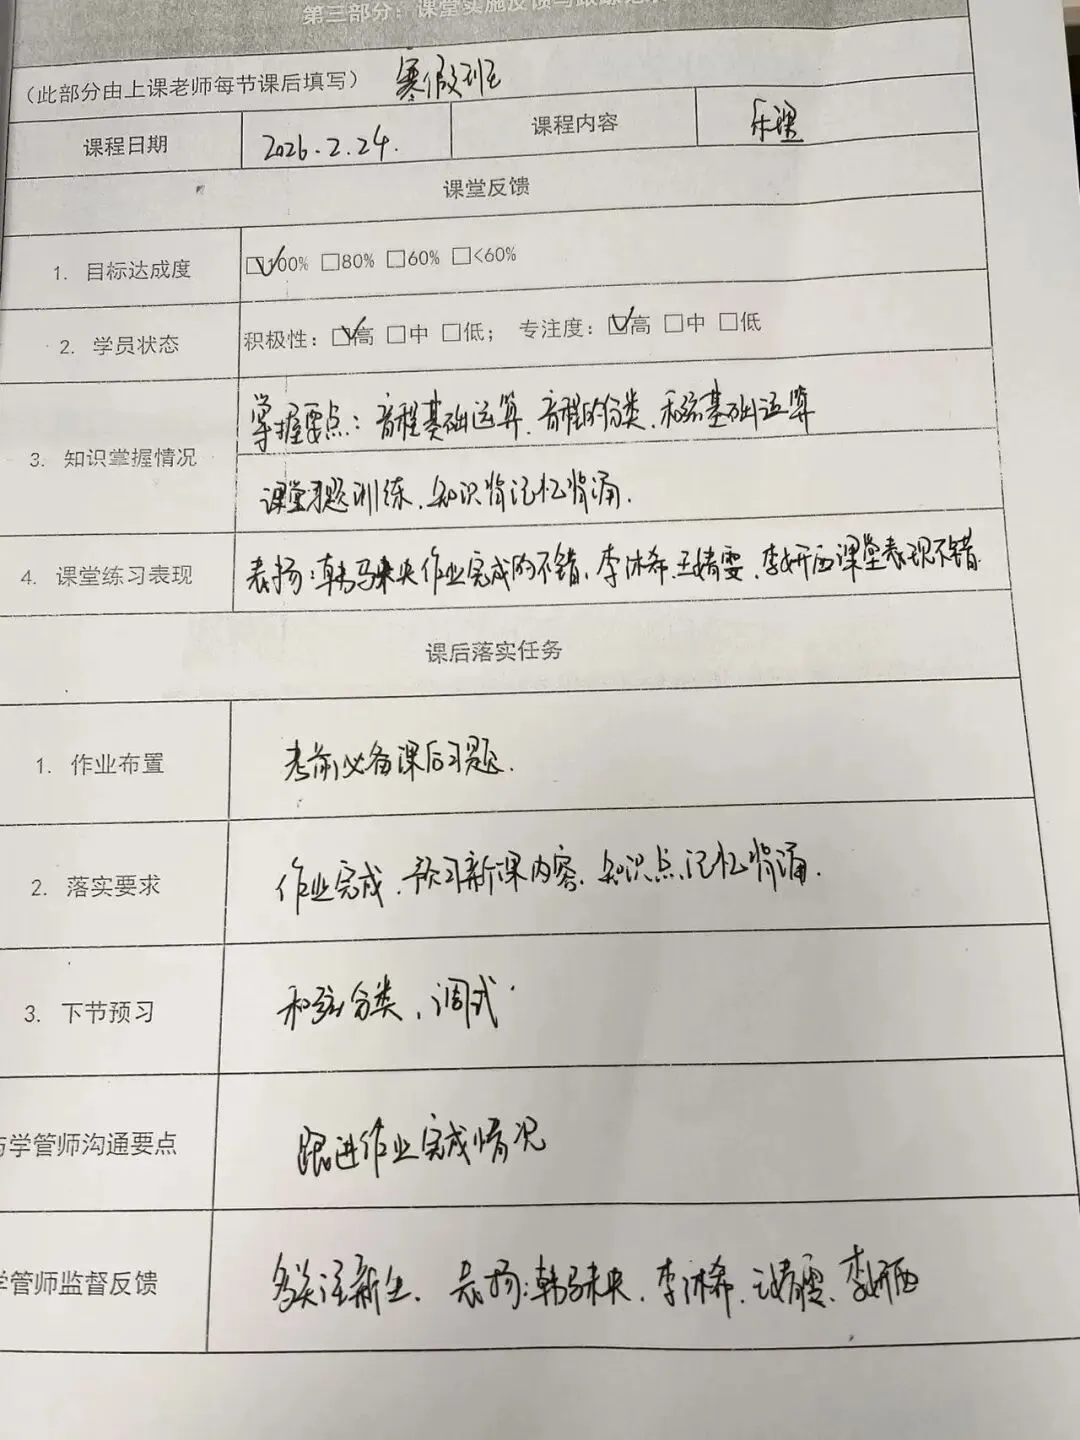 第三部分：课堂实施反馈与跟踪记录
（此部分由上课老师每节课后填写） 寒假班
课程日期 2026.2.24. 课程内容 乐理
课堂反馈
1. 目标达成度 ☑100% □80% □60% □<60%
2. 学员状态 积极性：☑高 □中 □低； 专注度：☑高 □中 □低
3. 知识掌握情况 掌握要点：音程基础运算、音程的分类、和弦基础运算
课堂习题训练、知识背记忆背诵.
4. 课堂练习表现 表扬：韩马未央作业完成的不错、李沐希、王婧雯、李妍西课堂表现不错.
课后落实任务
1. 作业布置 考前必备课后习题.
2. 落实要求 作业完成、预习新课内容、知识点记忆背诵.
3. 下节预习 和弦分类、调式.
与学管师沟通要点 跟进作业完成情况
学管师监督反馈 多关注新生、表扬：韩马未央、李沐希、王婧雯、李妍西